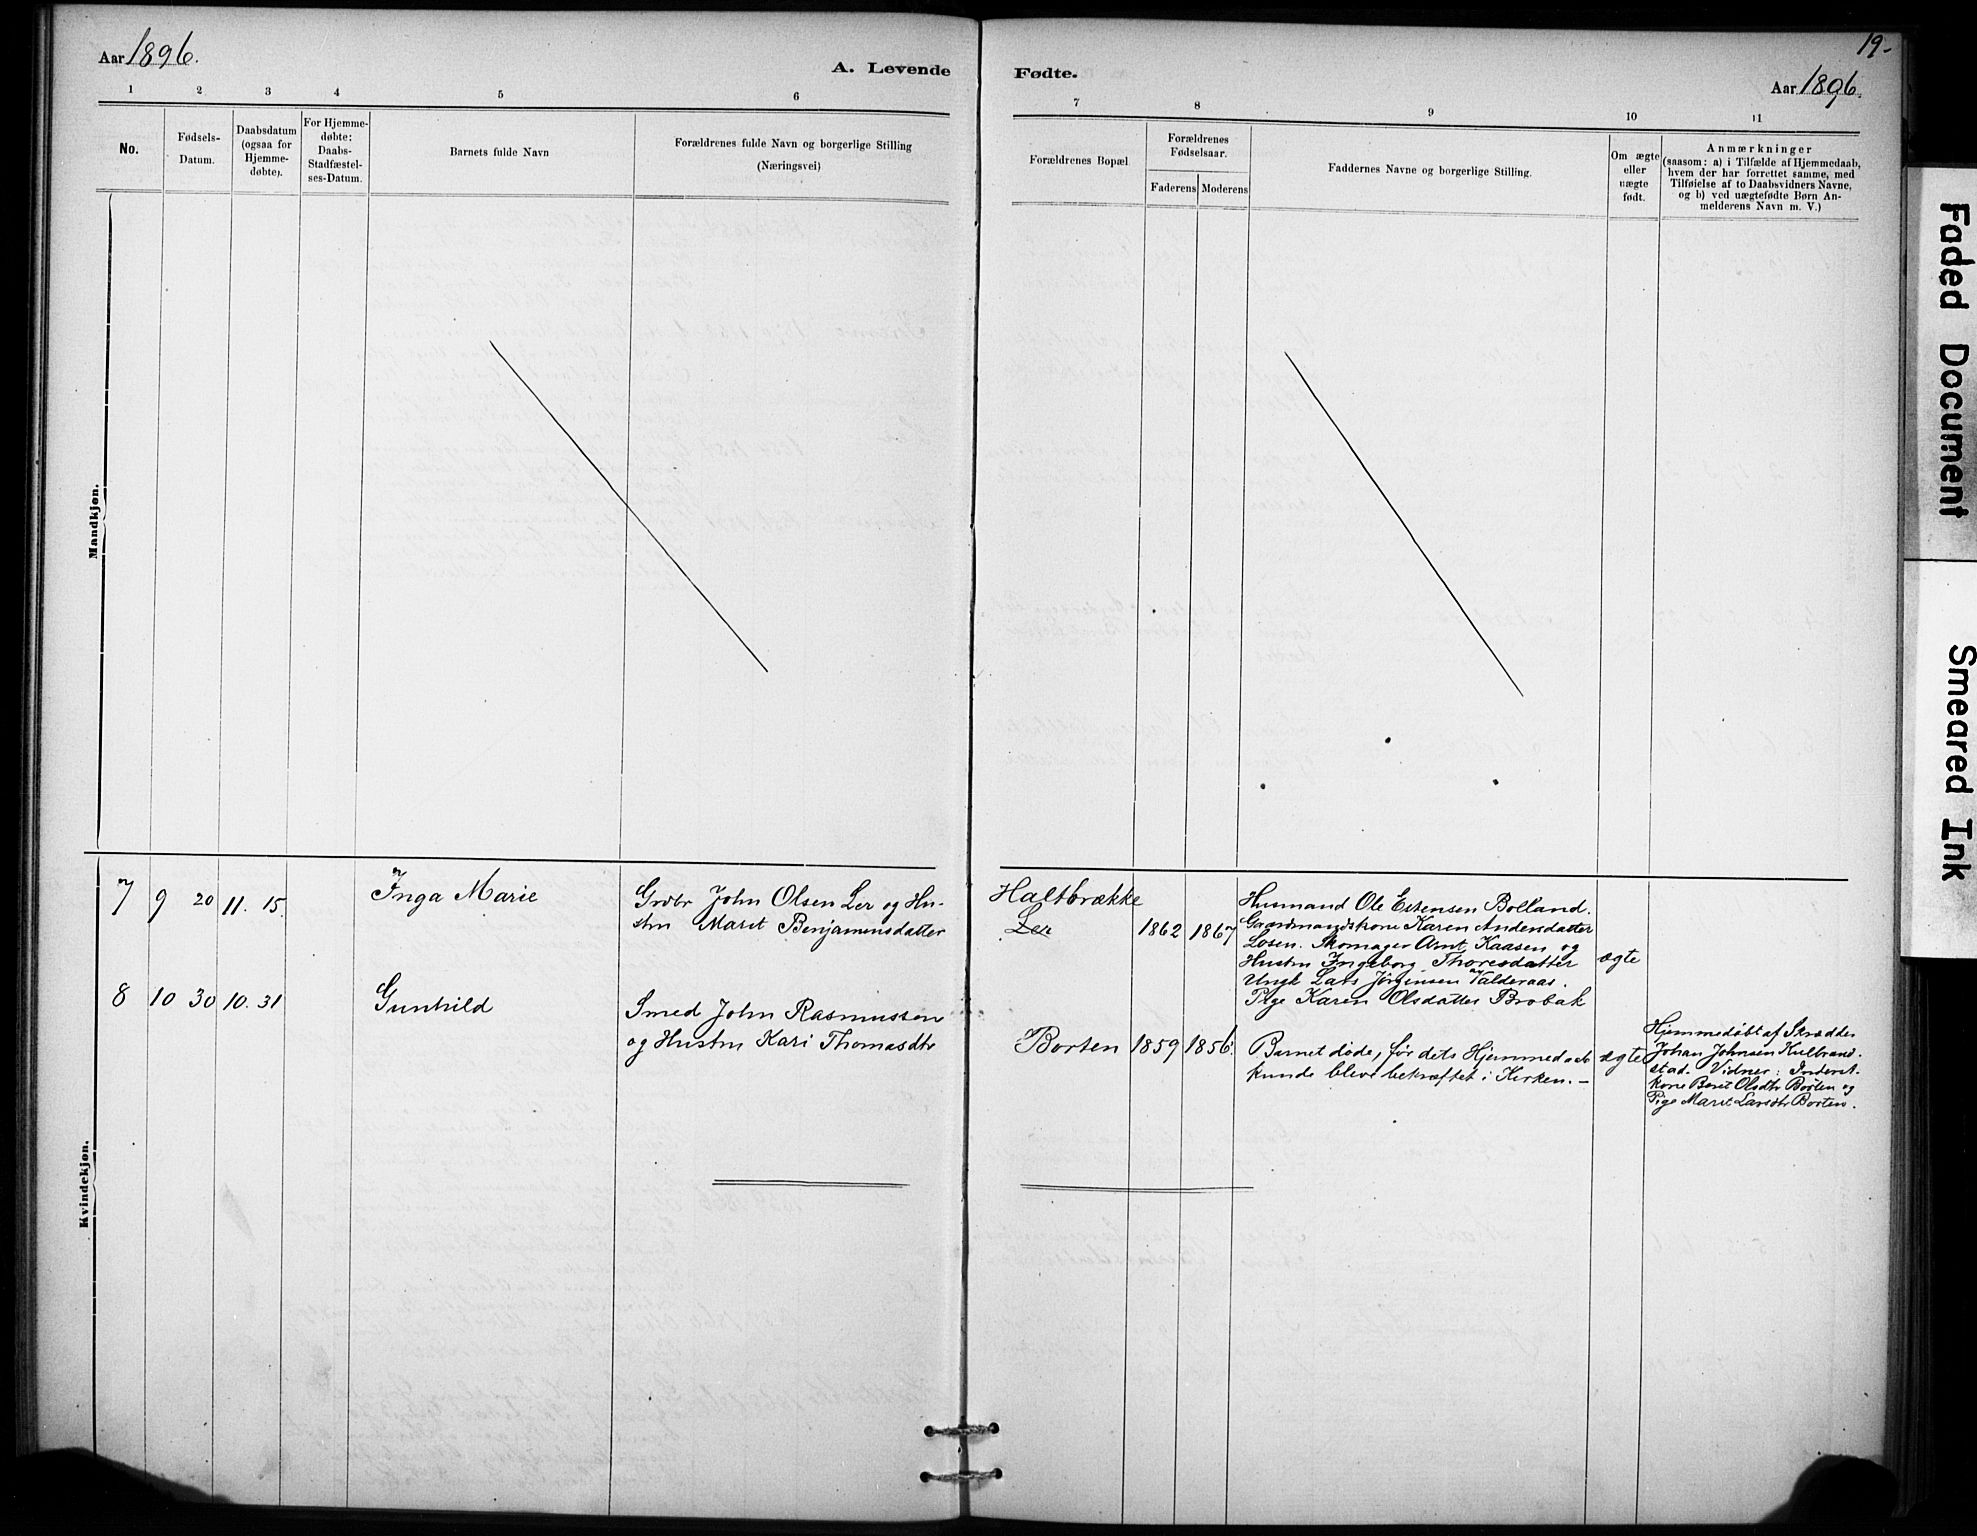 Aar 1896.
A. Levende
1 2 3 4 5 6
No.
Fødsels-
Datum.
Daabsdatum
(ogsaa for
Hjemme-
døbte).
For Hjemme-
døbte:
Daabs-
Stadfæstel-
ses-Datum.
Barnets fulde Navn
Forældrenes fulde Navn og borgerlige Stilling
(Næringsvei)
Mandkjøn.
7 9 20 11. 15. Inga Marie
Grdbr John Olsen Ler og Hu-
stru Marit Benjaminsdatter
8 10 30 10. 31 Gunhild
Smed John Rasmussen
og Hustru Kari Thomasdtr
Kvindekjøn.
19-
Fødte.
Aar 1896.
7 8 9 10 11
Forældrenes Bopæl
Forældrenes
Fødselsaar.
Faderens Moderens
Faddernes Navne og borgerlige Stilling.
Om ægte
eller
uægte
født.
Anmærkninger
(saasom: a) i Tilfælde af Hjemmedaab,
hvem der har forrettet samme, med
Tilføielse af to Daabsvidners Navne,
og b) ved uægtefødte Børn An-
melderens Navn m. V.)
Haltbrække
Ler 1862 1867
Husmand Ole Estensen Bolland.
Gaardmandskone Karen Andersdatter
Losen. Skomager Arnt Kaasen og
Hustru Ingeborg Thoresdatter
Ungk Lars Jörgensen Valderaas.
Pige Karen Olsdatter Brobak
ægte
Borten 1859 1856.
Barnet døde, før dets Hjemmedaab
kunde blive bekræftet i Kirken. -
ægte
Hjemmedøbt af Skrædder
Johan Johnsen Kulbrand-
stad. Vidner: Inderst-
kone Beret Olsdtr Borten og
Pige Marit Larsdtr Borten.
Faded Document
Smeared Ink